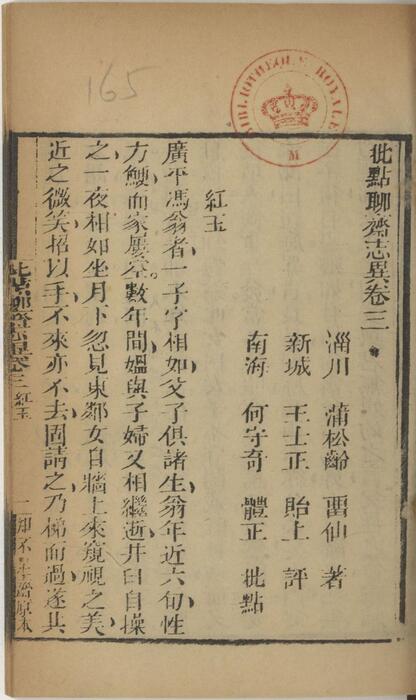 165
BIBLIOTHEQUE ROYALE
M
批點聊齋志異卷三
淄川 蒲松齡 畱仙 著
新城 王士正 貽上 評
南海 何守奇 體正 批點
紅玉
廣平馮翁者一子字相如父子俱諸生翁年近六旬性
方鯁而家屢空數年間媼與子婦又相繼逝井臼自操
之一夜相如坐月下忽見東鄰女自牆上來窺視之美
近之微笑招以手不來亦不去固請之乃梯而過遂共
批點聊齋志異卷三 紅玉
一 知不足齋原本